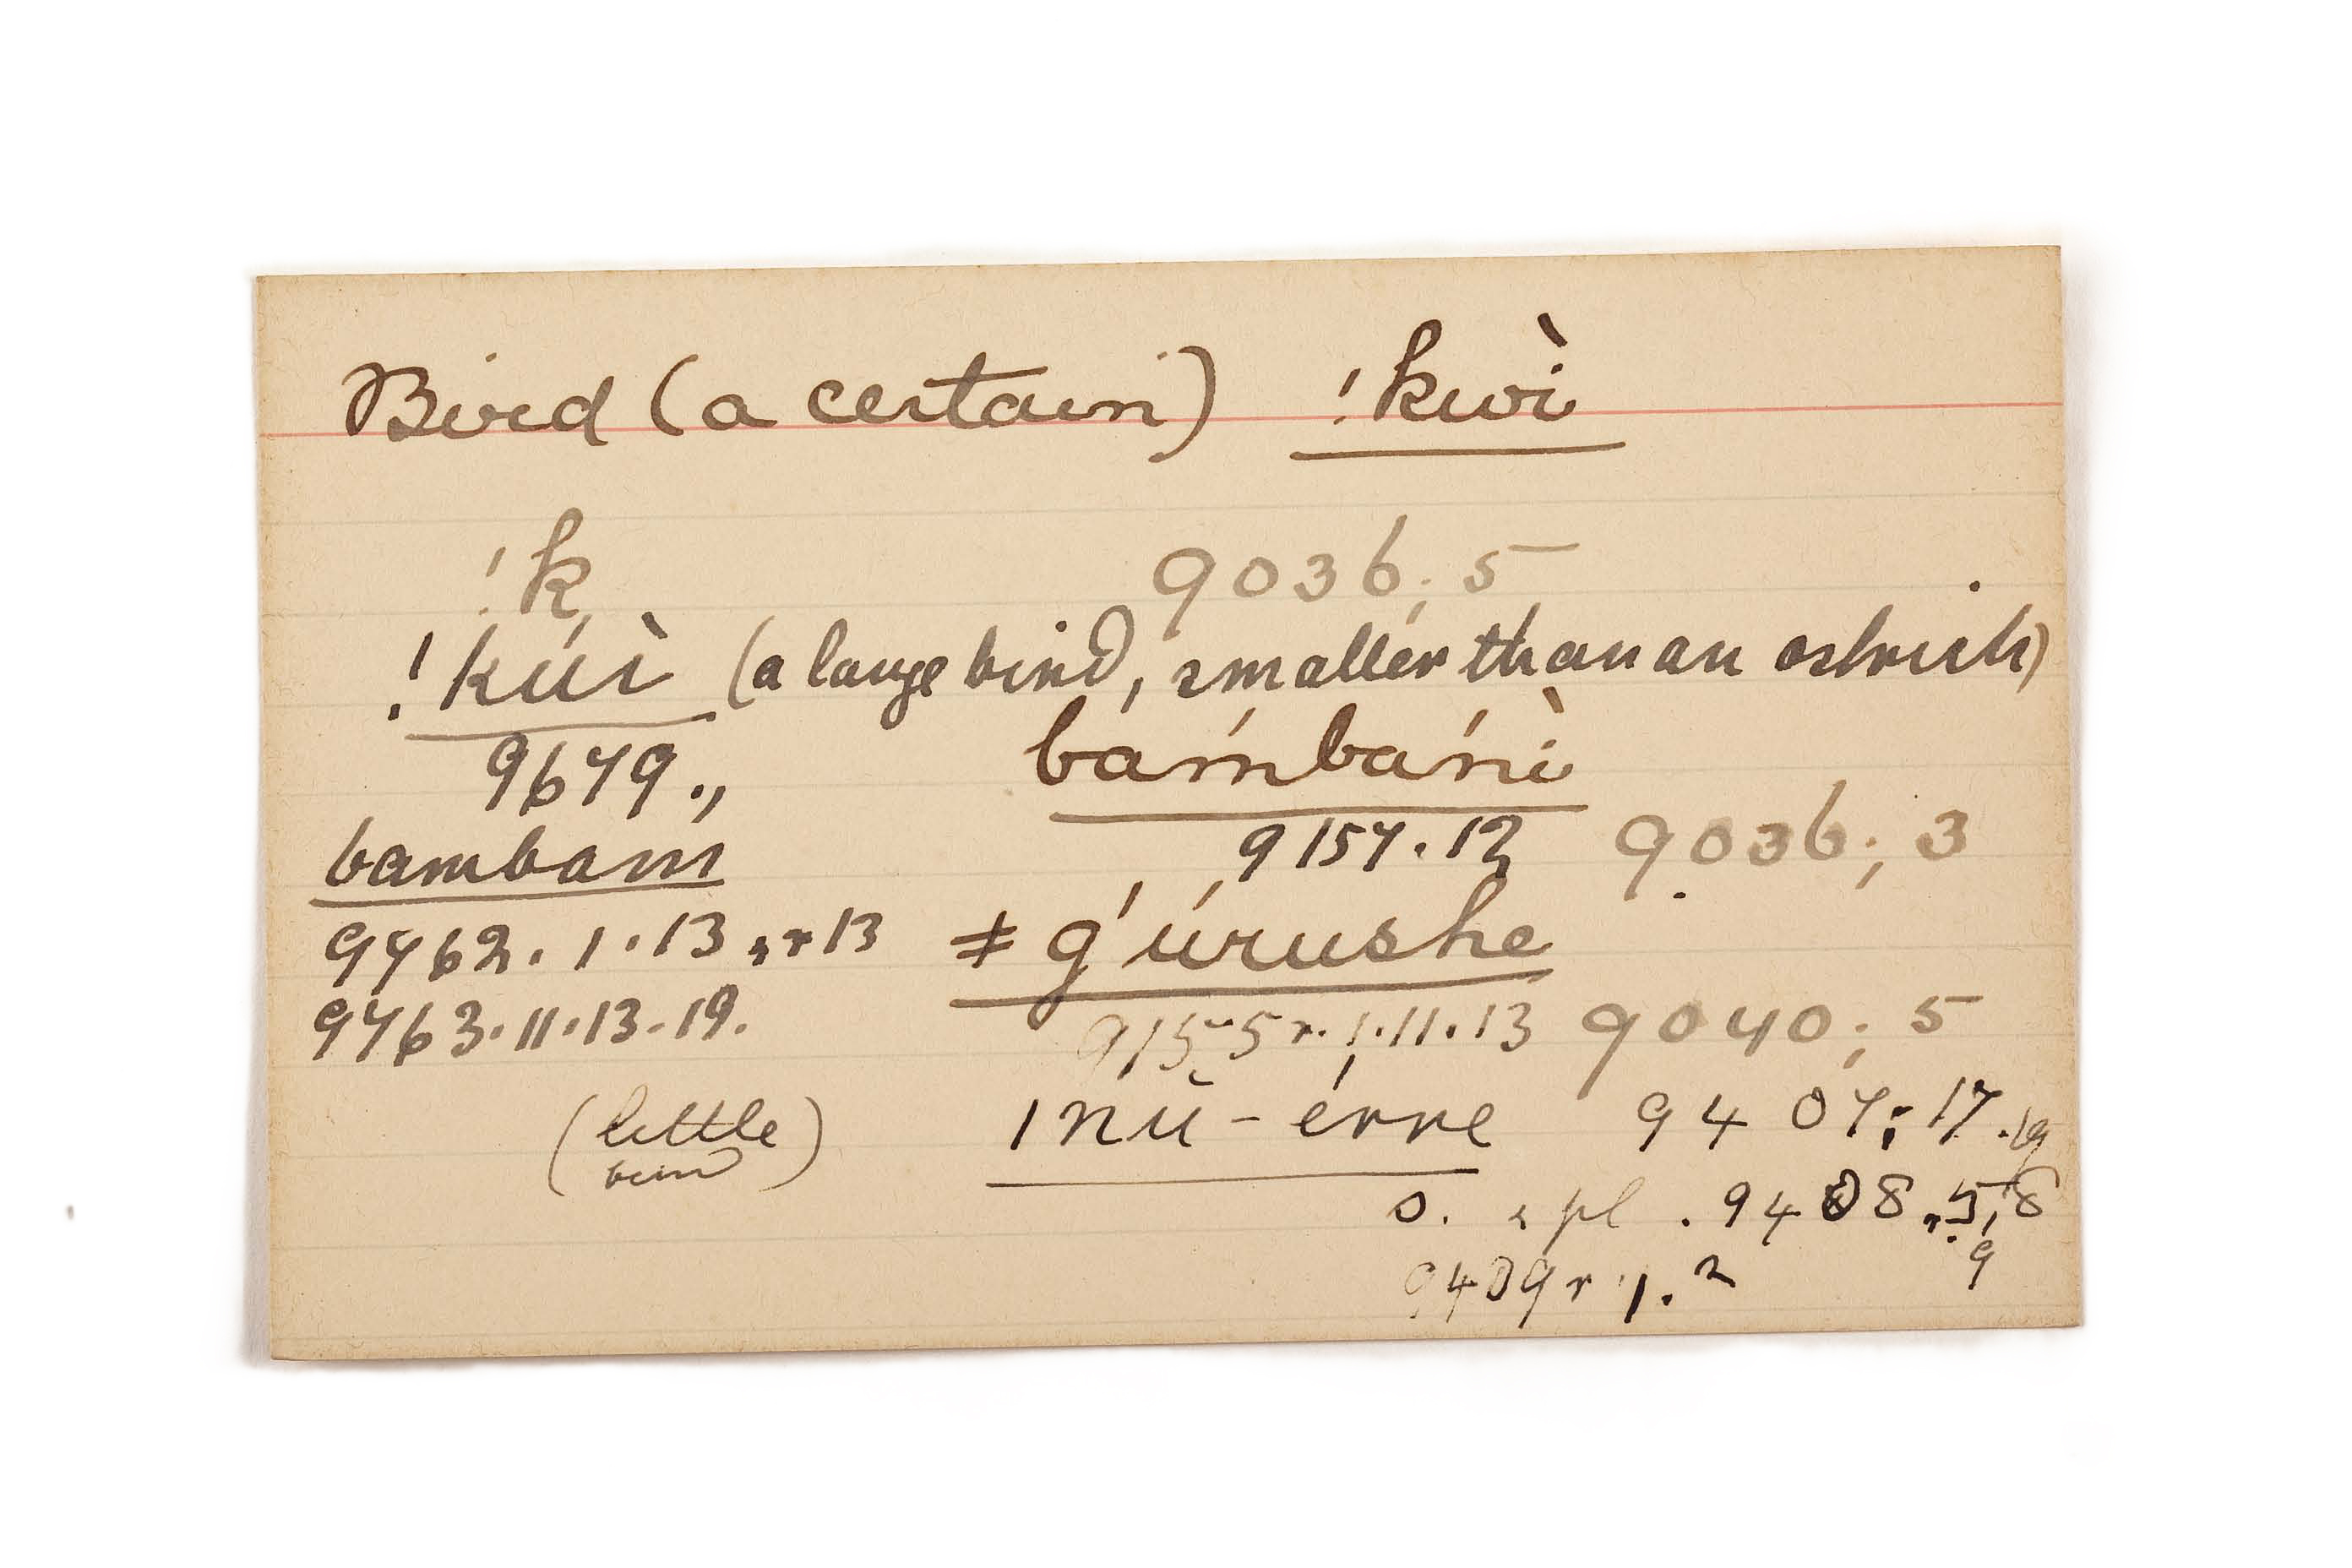 Bird (a certain) !kwì
!k 9036; 5
!kúì (a large bird, smaller than an ostrich)
9679.,
bámbánì
bambam
9157.12 9036; 3
9462. 1. 13
ǂg'úrushe
9463.11.13.19.
9155r. 1.11.13 9040; 5
(little bird) ǀnŭ-érre 9407; 17.19
s. & pl. 9408. 5, 8
9
9409r 1.2